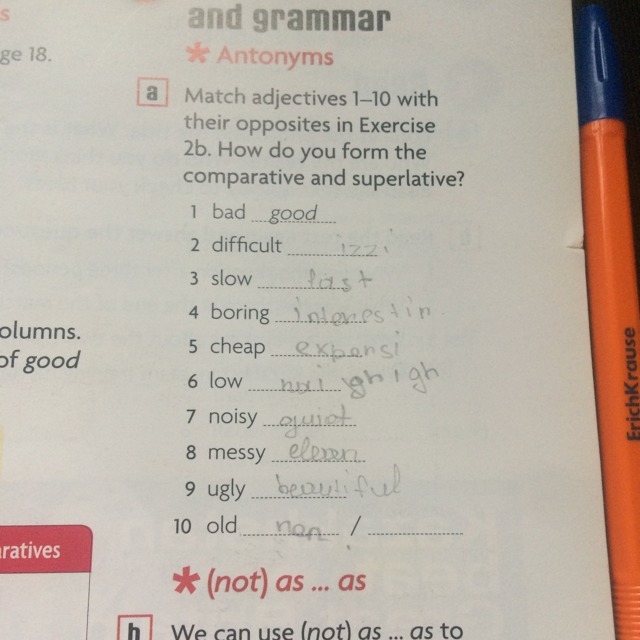 s
and grammar
ge 18.
* Antonyms
a Match adjectives 1–10 with
their opposites in Exercise
2b. How do you form the
comparative and superlative?
1 bad good
2 difficult izzi
3 slow
4 boring interestin
olumns.
5 cheap expansi
of good
6 low high
7 noisy quiot
8 messy
9 ugly beautiful
10 old /
ratives
* (not) as ... as
b We can use (not) as ... as to
ErichKrause